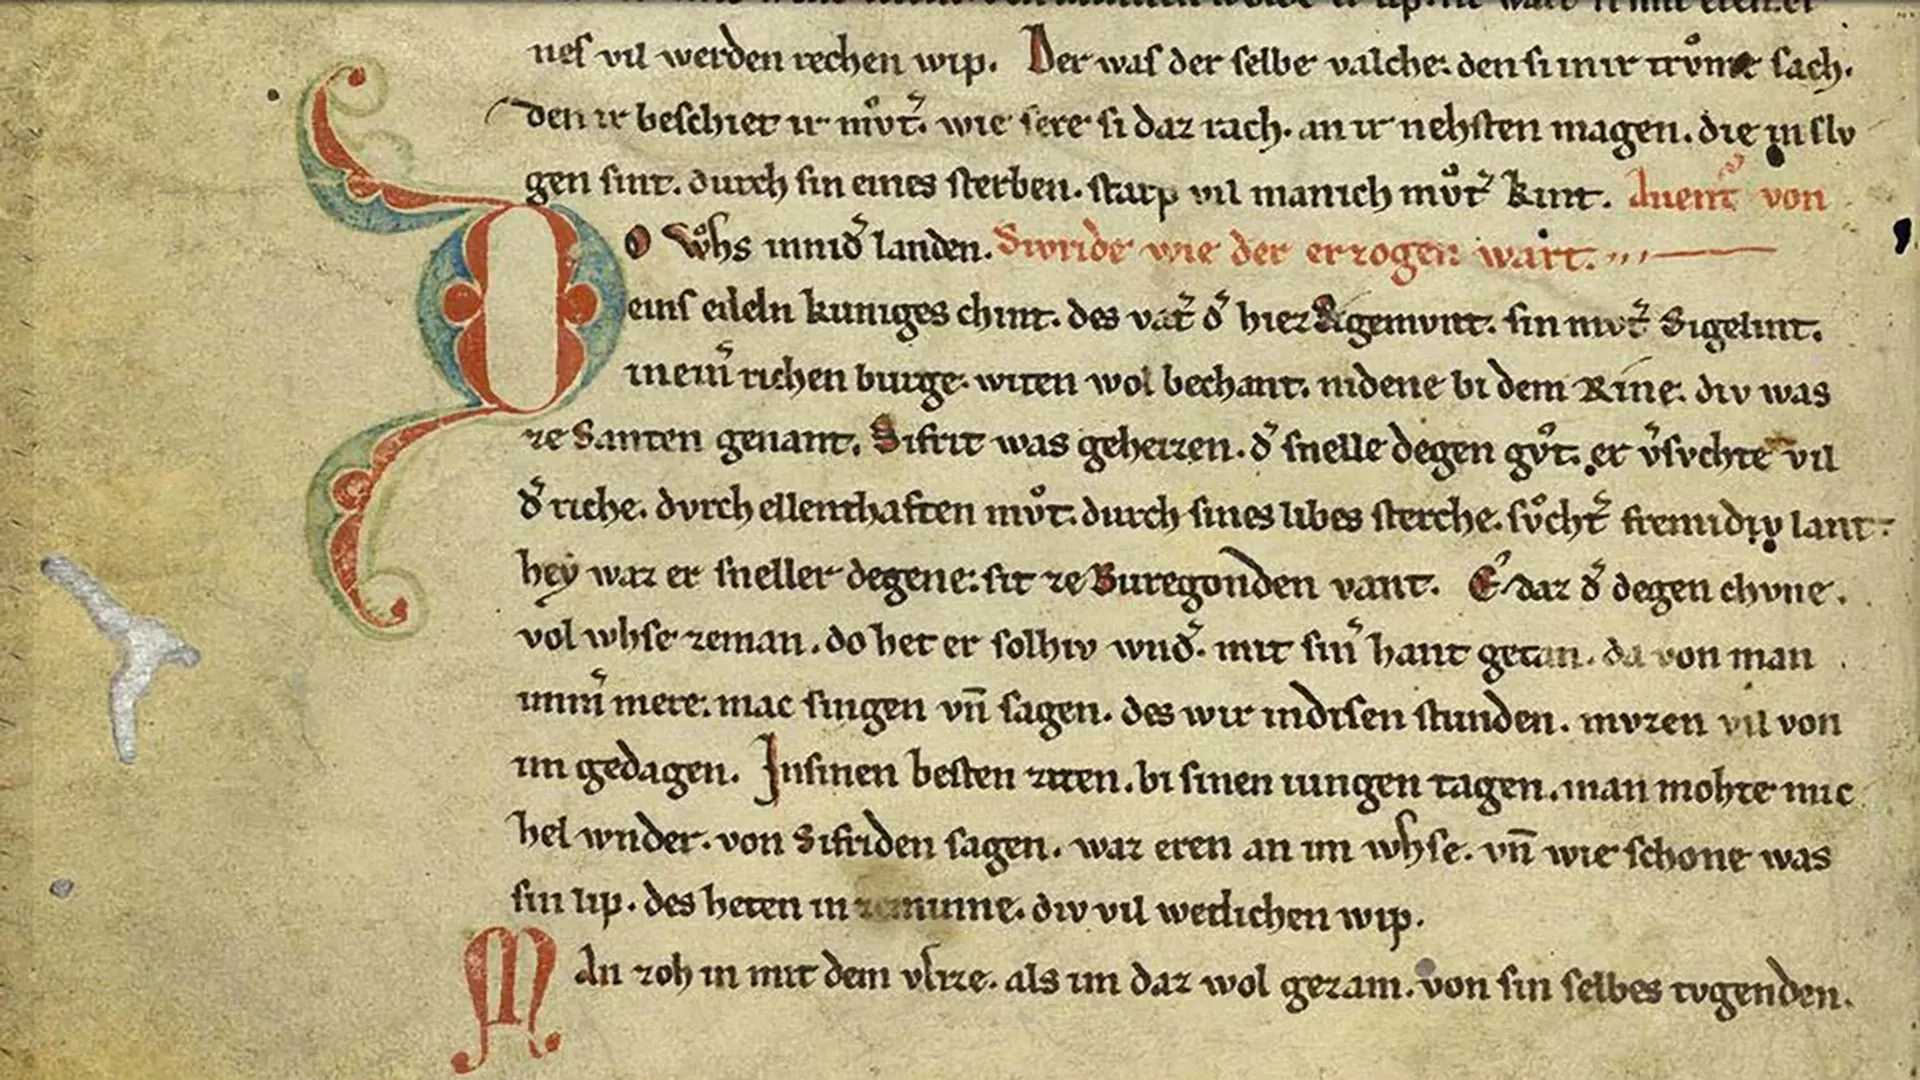 nes vil werden rechen wip. Der was der selbe valche. den si in ir trǒme sach.
den ir beschiet ir mv̊t̾. wie sere si daz rach. an ir nehsten magen. die in slv
gen sint. durch sin eines sterben. starp vil manich mv̊t̾ kint. Auent̾ von
DO wͦhs in nid̾ landen. Swride wie der erzogen wart.
eins edeln kuniges chint. des vat̾ d̾ hiez Sigemunt. sin mvͦt̾ Sigelint.
in ein̾ richen burge. witen wol bechant. nidene bi dem Rine. div was
ze Santen genant. Sifrit was geheizen. d̾ snelle degen gv̊t. er v̾svchte vil
d̾ riche. dvrch ellenthaften mv̊t. durch sines libes sterche. sv̊cht̾ fremidiv lant.
hey waz er sneller degene. sit ze Buregonden vant. E daz d̾ degen chvne.
vol whse zeman. do het er solhiv wnd̾. mit sin̾ hant getan. da von man
imm̾ mere. mac singen vn̄ sagen. des wir in disen stunden. mvzen vil von
im gedagen. In sinen besten ziten. bi sinen iungen tagen. man mohte mic
hel wnder. von Sifriden sagen. waz eren an im whse. vn̄ wie schone was
sin lip. des heten in ze minne. div vil wetlichen wip.
MAn zoh in mit dem vlize. als im daz wol gezam. von sin selbes tvgenden.